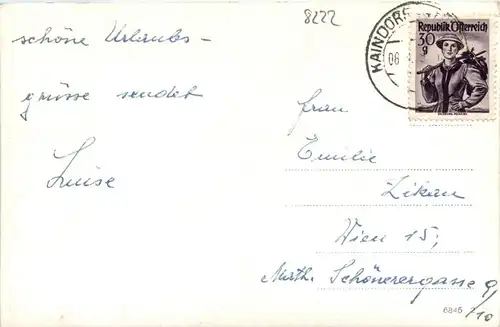 8222
KAINDORF
06
Republik Österreich
30
g
schöne Urlaubs-
grüsse sendet
Luise
Frau
Emilie
Zikan
Wien 15,
Schönerergasse 9/10
6845